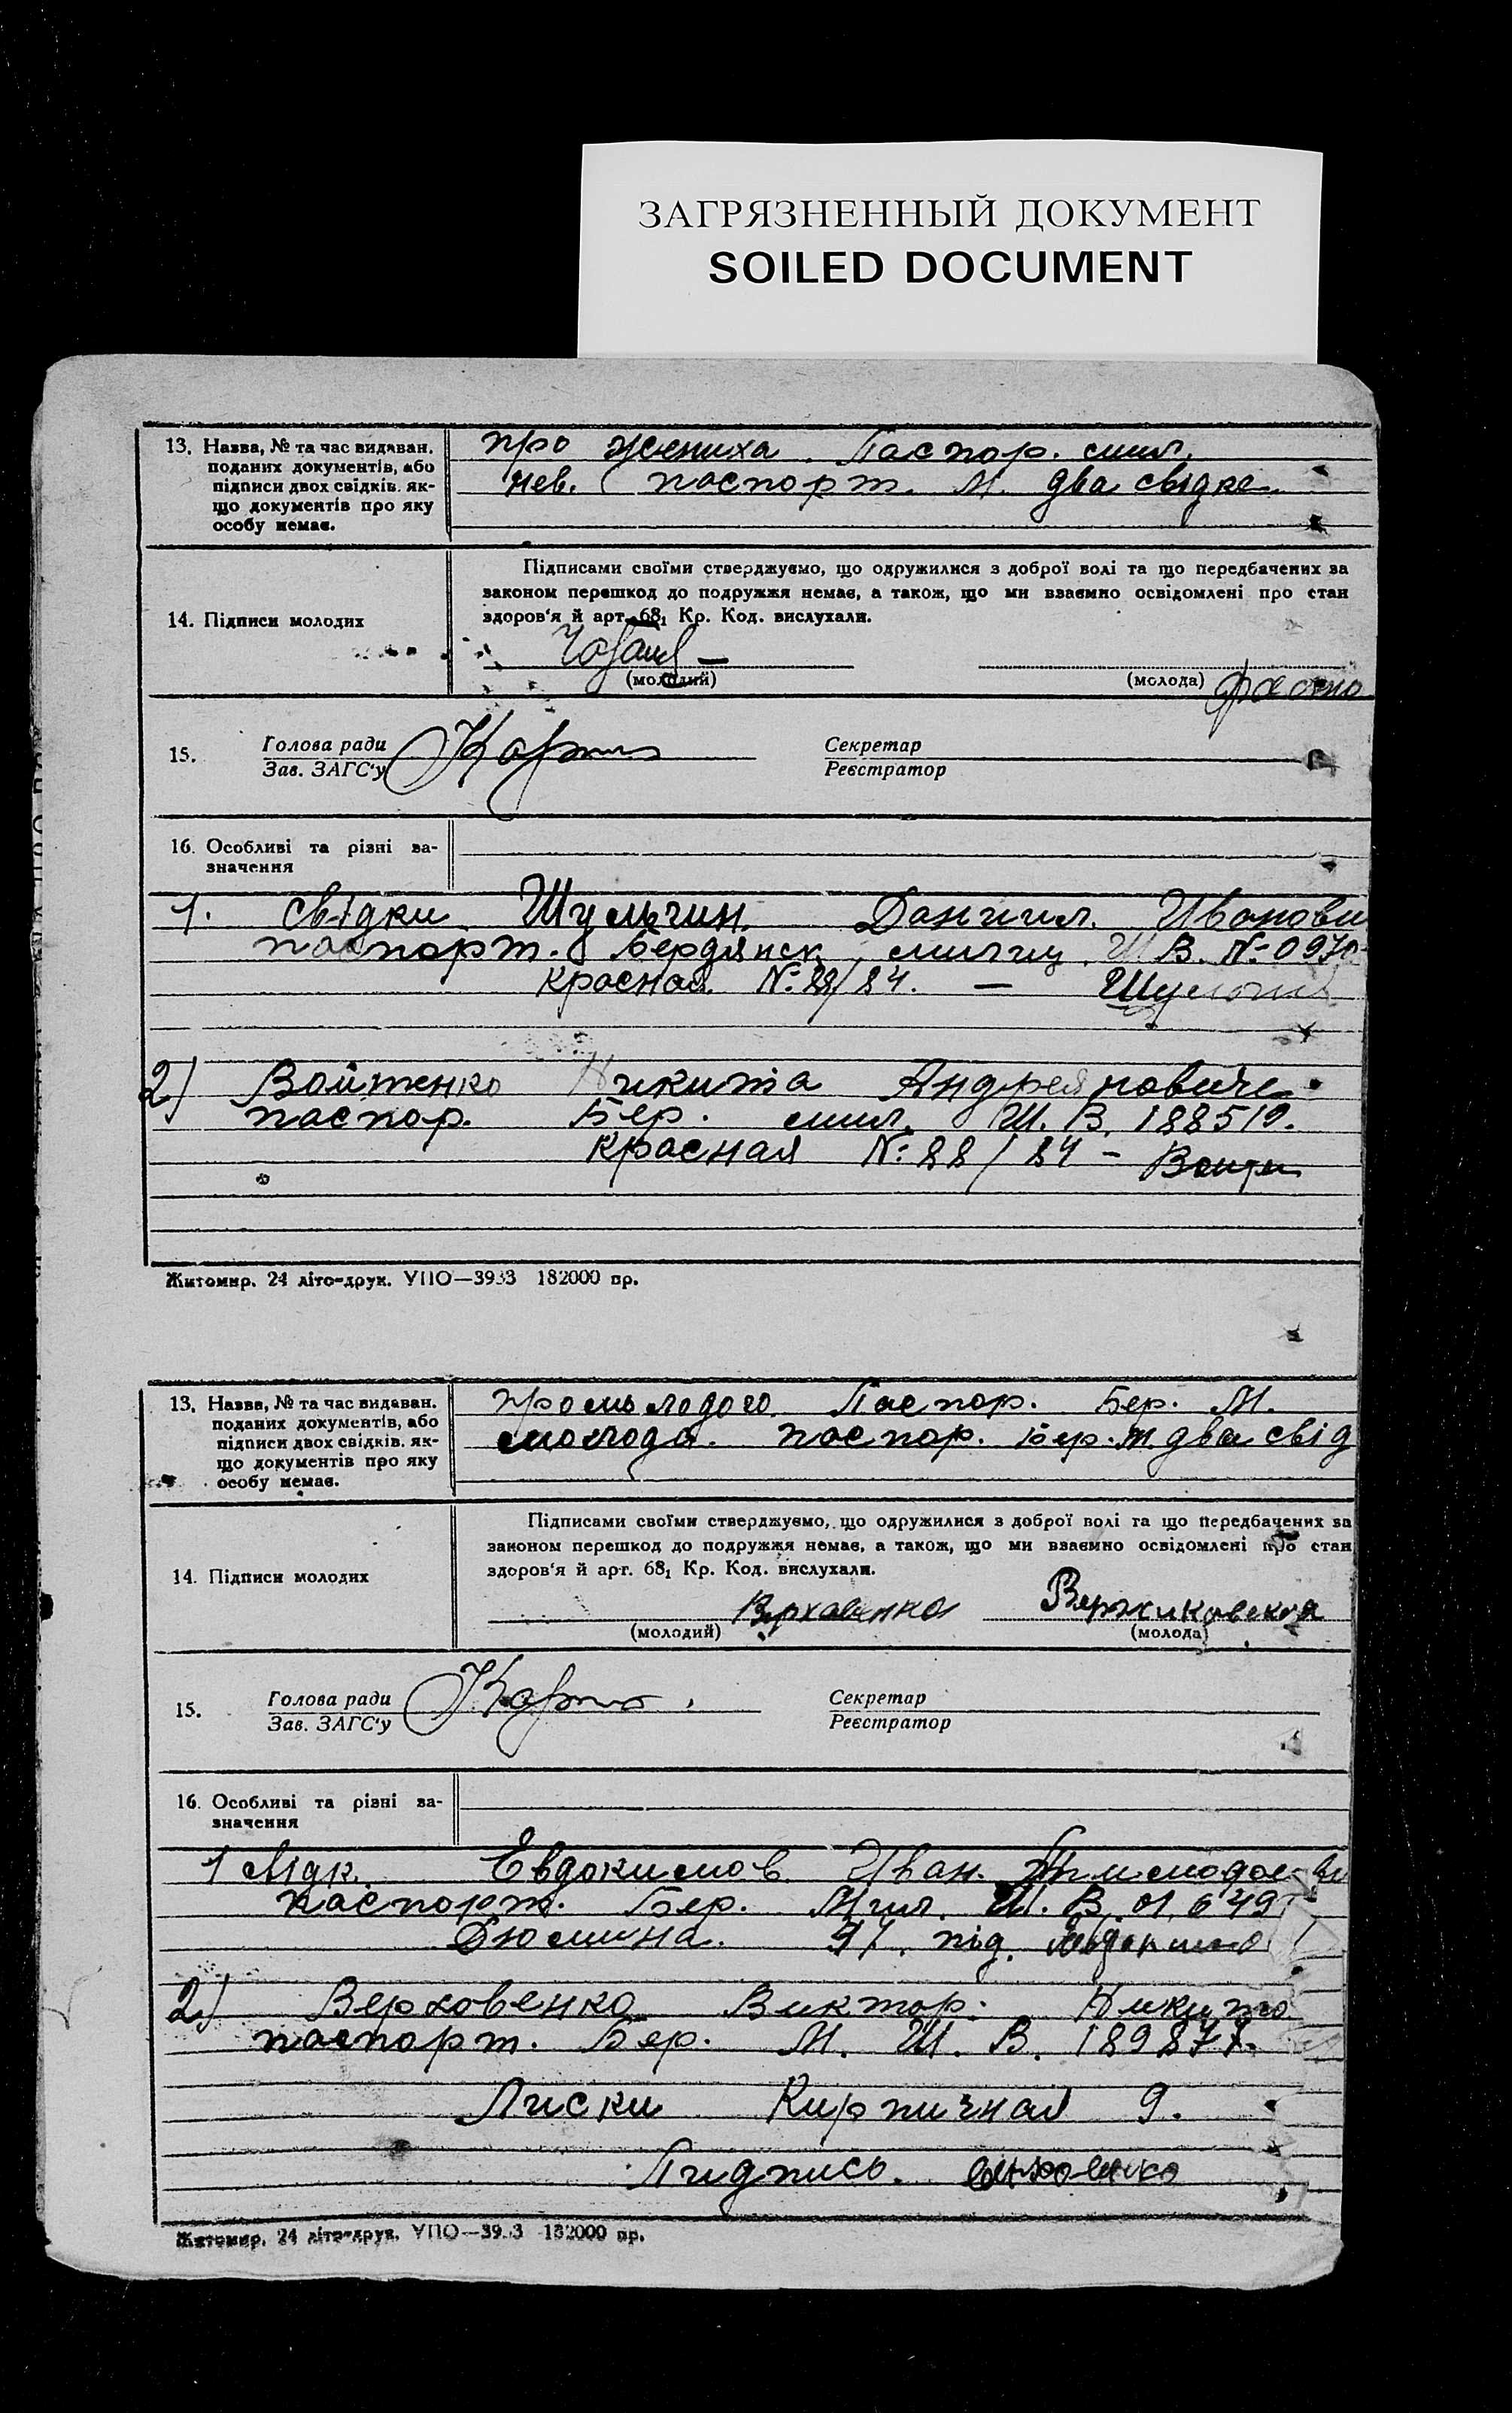 ЗАГРЯЗНЕННЫЙ ДОКУМЕНТ
SOILED DOCUMENT
13. Назва, № та час видаван. поданих документів, або підписи двох свідків, якщо документів про яку особу немає.
про жениха. Паспор. мил.
нев. паспорт. М. два свідке
Підписами своїми стверджуємо, що одружилися з доброї волі та що передбачених за
законом перешкод до подружжя немає, а також, що ми взаємно освідомлені про стан
здоров'я й арт. 68₁ Кр. Код. вислухали.
14. Підписи молодих
(молодий) (молода)
15. Голова ради Секретар
Зав. ЗАГС'у Реєстратор
16. Особливі та різні зазначення
1. свідки Шульгин. Даниил. Иванови
паспорт. Бердянск. милиц. Ш В. № 0970
Красная № 88/84. —
2) Войтенко Никита Андреянович
паспор. Бер. мил. Ш. В. 188519.
Красная № 88/84 –
Житомир. 24 літо-друк. УПО—3933 182000 пр.
13. Назва, № та час видаван. поданих документів, або підписи двох свідків, якщо документів про яку особу немає.
про молодого. Паспор. Бер. М.
молода. паспор. Бер. М. два свід
Підписами своїми стверджуємо, що одружилися з доброї волі та що передбачених за
законом перешкод до подружжя немає, а також, що ми взаємно освідомлені про стан
здоров'я й арт. 68₁ Кр. Код. вислухали.
14. Підписи молодих
Верховенко Вержиковская
(молодий) (молода)
15. Голова ради Секретар
Зав. ЗАГС'у Реєстратор
16. Особливі та різні зазначення
1 свідк. Евдокимов Иван.
паспорт. Бер. Мил. Ш. В. 01,649
Дюмина. 97. під.
2) Верховенко Виктор. Никито
паспорт. Бер. М. Ш. В. 189877.
Лиски Кирпичная 9.
Пидпись. Верховенко
Житомир. 24 літо-друк. УПО—3933 182000 пр.